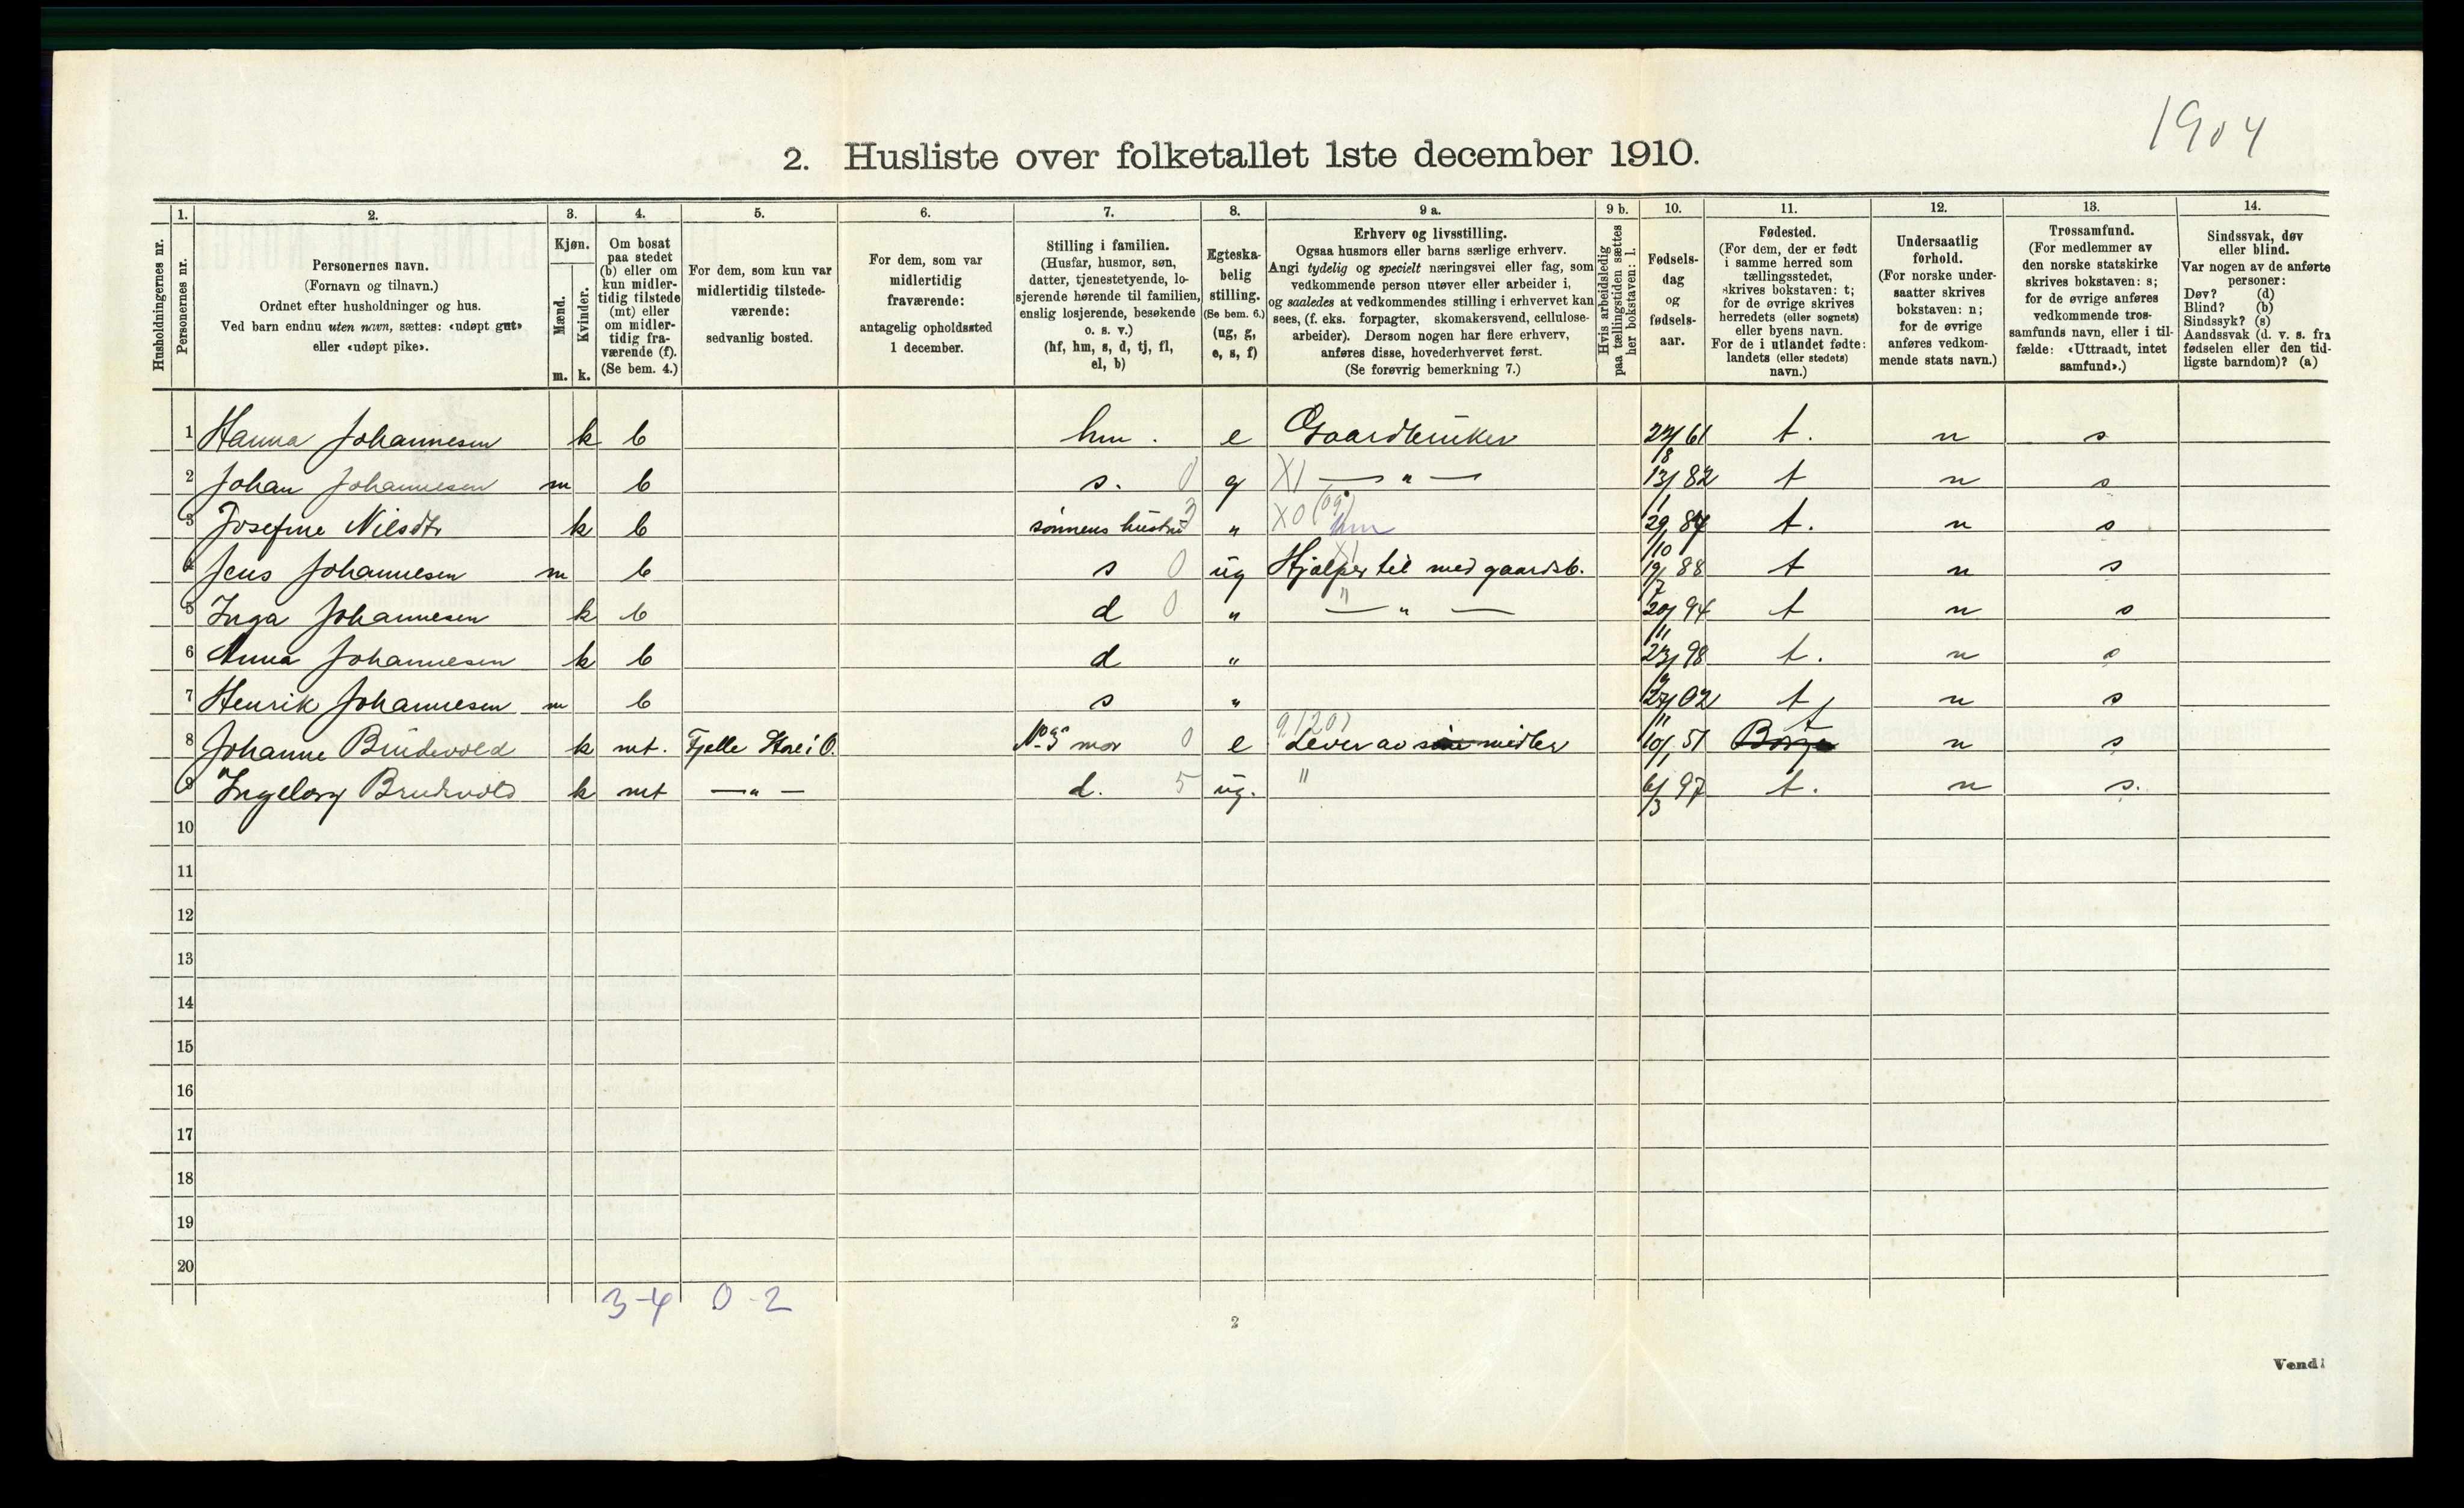 1904
2. Husliste over folketallet 1ste december 1910.
Husholdningernes nr.
1. Personernes nr.
2. Personernes navn.
(Fornavn og tilnavn.)
Ordnet efter husholdninger og hus.
Ved barn endnu uten navn, sættes: «udøpt gut»
eller «udøpt pike».
3. Kjøn.
Mænd. Kvinder.
m. k.
4. Om bosat
paa stedet
(b) eller om
kun midler-
tidig tilstede
(mt) eller
om midler-
tidig fra-
værende (f).
(Se bem. 4.)
5. For dem, som kun var
midlertidig tilstede-
værende:
sedvanlig bosted.
6. For dem, som var
midlertidig
fraværende:
antagelig opholdssted
1 december.
7. Stilling i familien.
(Husfar, husmor, søn,
datter, tjenestetyende, lo-
sjerende hørende til familien,
enslig losjerende, besøkende
o. s. v.)
(hf, hm, s, d, tj, fl,
el, b)
8. Egteska-
belig
stilling.
(Se bem. 6.)
(ug, g,
e, s, f)
9 a. Erhverv og livsstilling.
Ogsaa husmors eller barns særlige erhverv.
Angi tydelig og specielt næringsvei eller fag, som
vedkommende person utøver eller arbeider i,
og saaledes at vedkommendes stilling i erhvervet kan
sees, (f. eks. forpagter, skomakersvend, cellulose-
arbeider). Dersom nogen har flere erhverv,
anføres disse, hovederhvervet først.
(Se forøvrig bemerkning 7.)
9 b. Hvis arbeidsledig
paa tællingstiden sættes
her bokstaven: l.
10. Fødsels-
dag
og
fødsels-
aar.
11. Fødested.
(For dem, der er født
i samme herred som
tællingsstedet,
skrives bokstaven: t;
for de øvrige skrives
herredets (eller sognets)
eller byens navn.
For de i utlandet fødte:
landets (eller stedets)
navn.)
12. Undersaatlig
forhold.
(For norske under-
saatter skrives
bokstaven: n;
for de øvrige
anføres vedkom-
mende stats navn.)
13. Trossamfund.
(For medlemmer av
den norske statskirke
skrives bokstaven: s;
for de øvrige anføres
vedkommende tros-
samfunds navn, eller i til-
fælde: «Uttraadt, intet
samfund».)
14. Sindssvak, døv
eller blind.
Var nogen av de anførte
personer:
Døv? (d)
Blind? (b)
Sindssyk? (s)
Aandssvak (d. v. s. fra
fødselen eller den tid-
ligste barndom)? (a)
1 Hanna Johannesen k b hm. e Gaardbruker 22/8 61 t. n s
2 Johan Johannesen m b s. 0 g XI — " — 13/1 82 t n s
3 Josefine Nilsdtr k b sønnens hustru 3 " XO (09) hm 29/10 84 t. n s
4 Jens Johannesen m b s 0 ug Hjælper til med gaardsb. XI 19/7 88 t n s
5 Inga Johannesen k b d 0 " — " — 20/11 94 t n s
6 Anna Johannesen k b d " 23/9 98 t. n s
7 Henrik Johannesen m b s " 27/11 02 t n s
8 Johanne Brudevold k mt. Fjelle Store i Ø. No 3s mor 0 e 9120) Lever av sine midler 10/1 51 Borge t n s
9 Ingeborg Brudevold k mt — " — d. 5 ug. " 6/3 97 t. n s.
10
11
12
13
14
15
16
17
18
19
20
3-4 0-2
2
Vend!